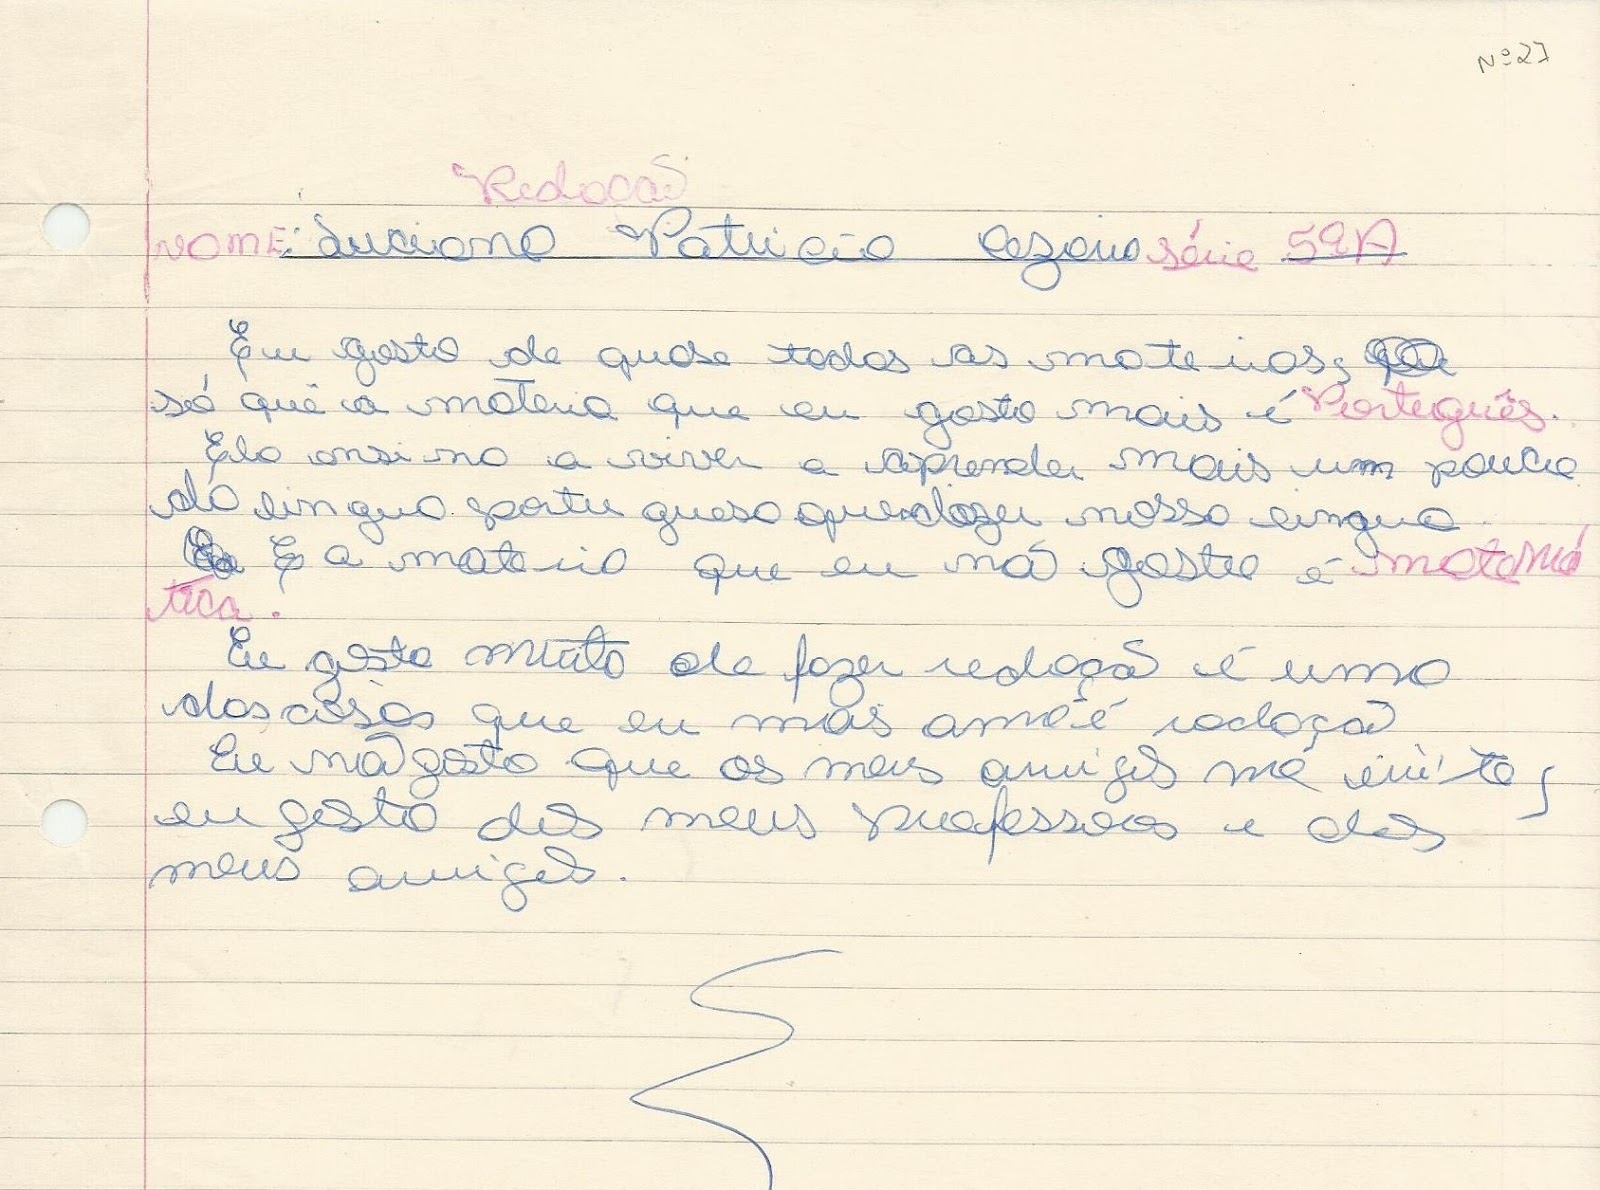 Nº 27
Redaçaõ
NOME: Luciano Patricio Cezario série 5ª A
Eu gosto de quase todas as materias,
só quê a materia que eu gosto mais é Português.
Ela ensina a viver a aprender mais um pouco
da lingua portuguesa quer dizer nossa lingua
E a materia que eu nã gosto é matemá
tica.
Eu gosto muito de fazer redaçã é uma
das cosas que eu mas amo é redaçã
Eu nã gosto que os meus amigos me irite,
eu gosto dos meus professores e dos
meus amigos.